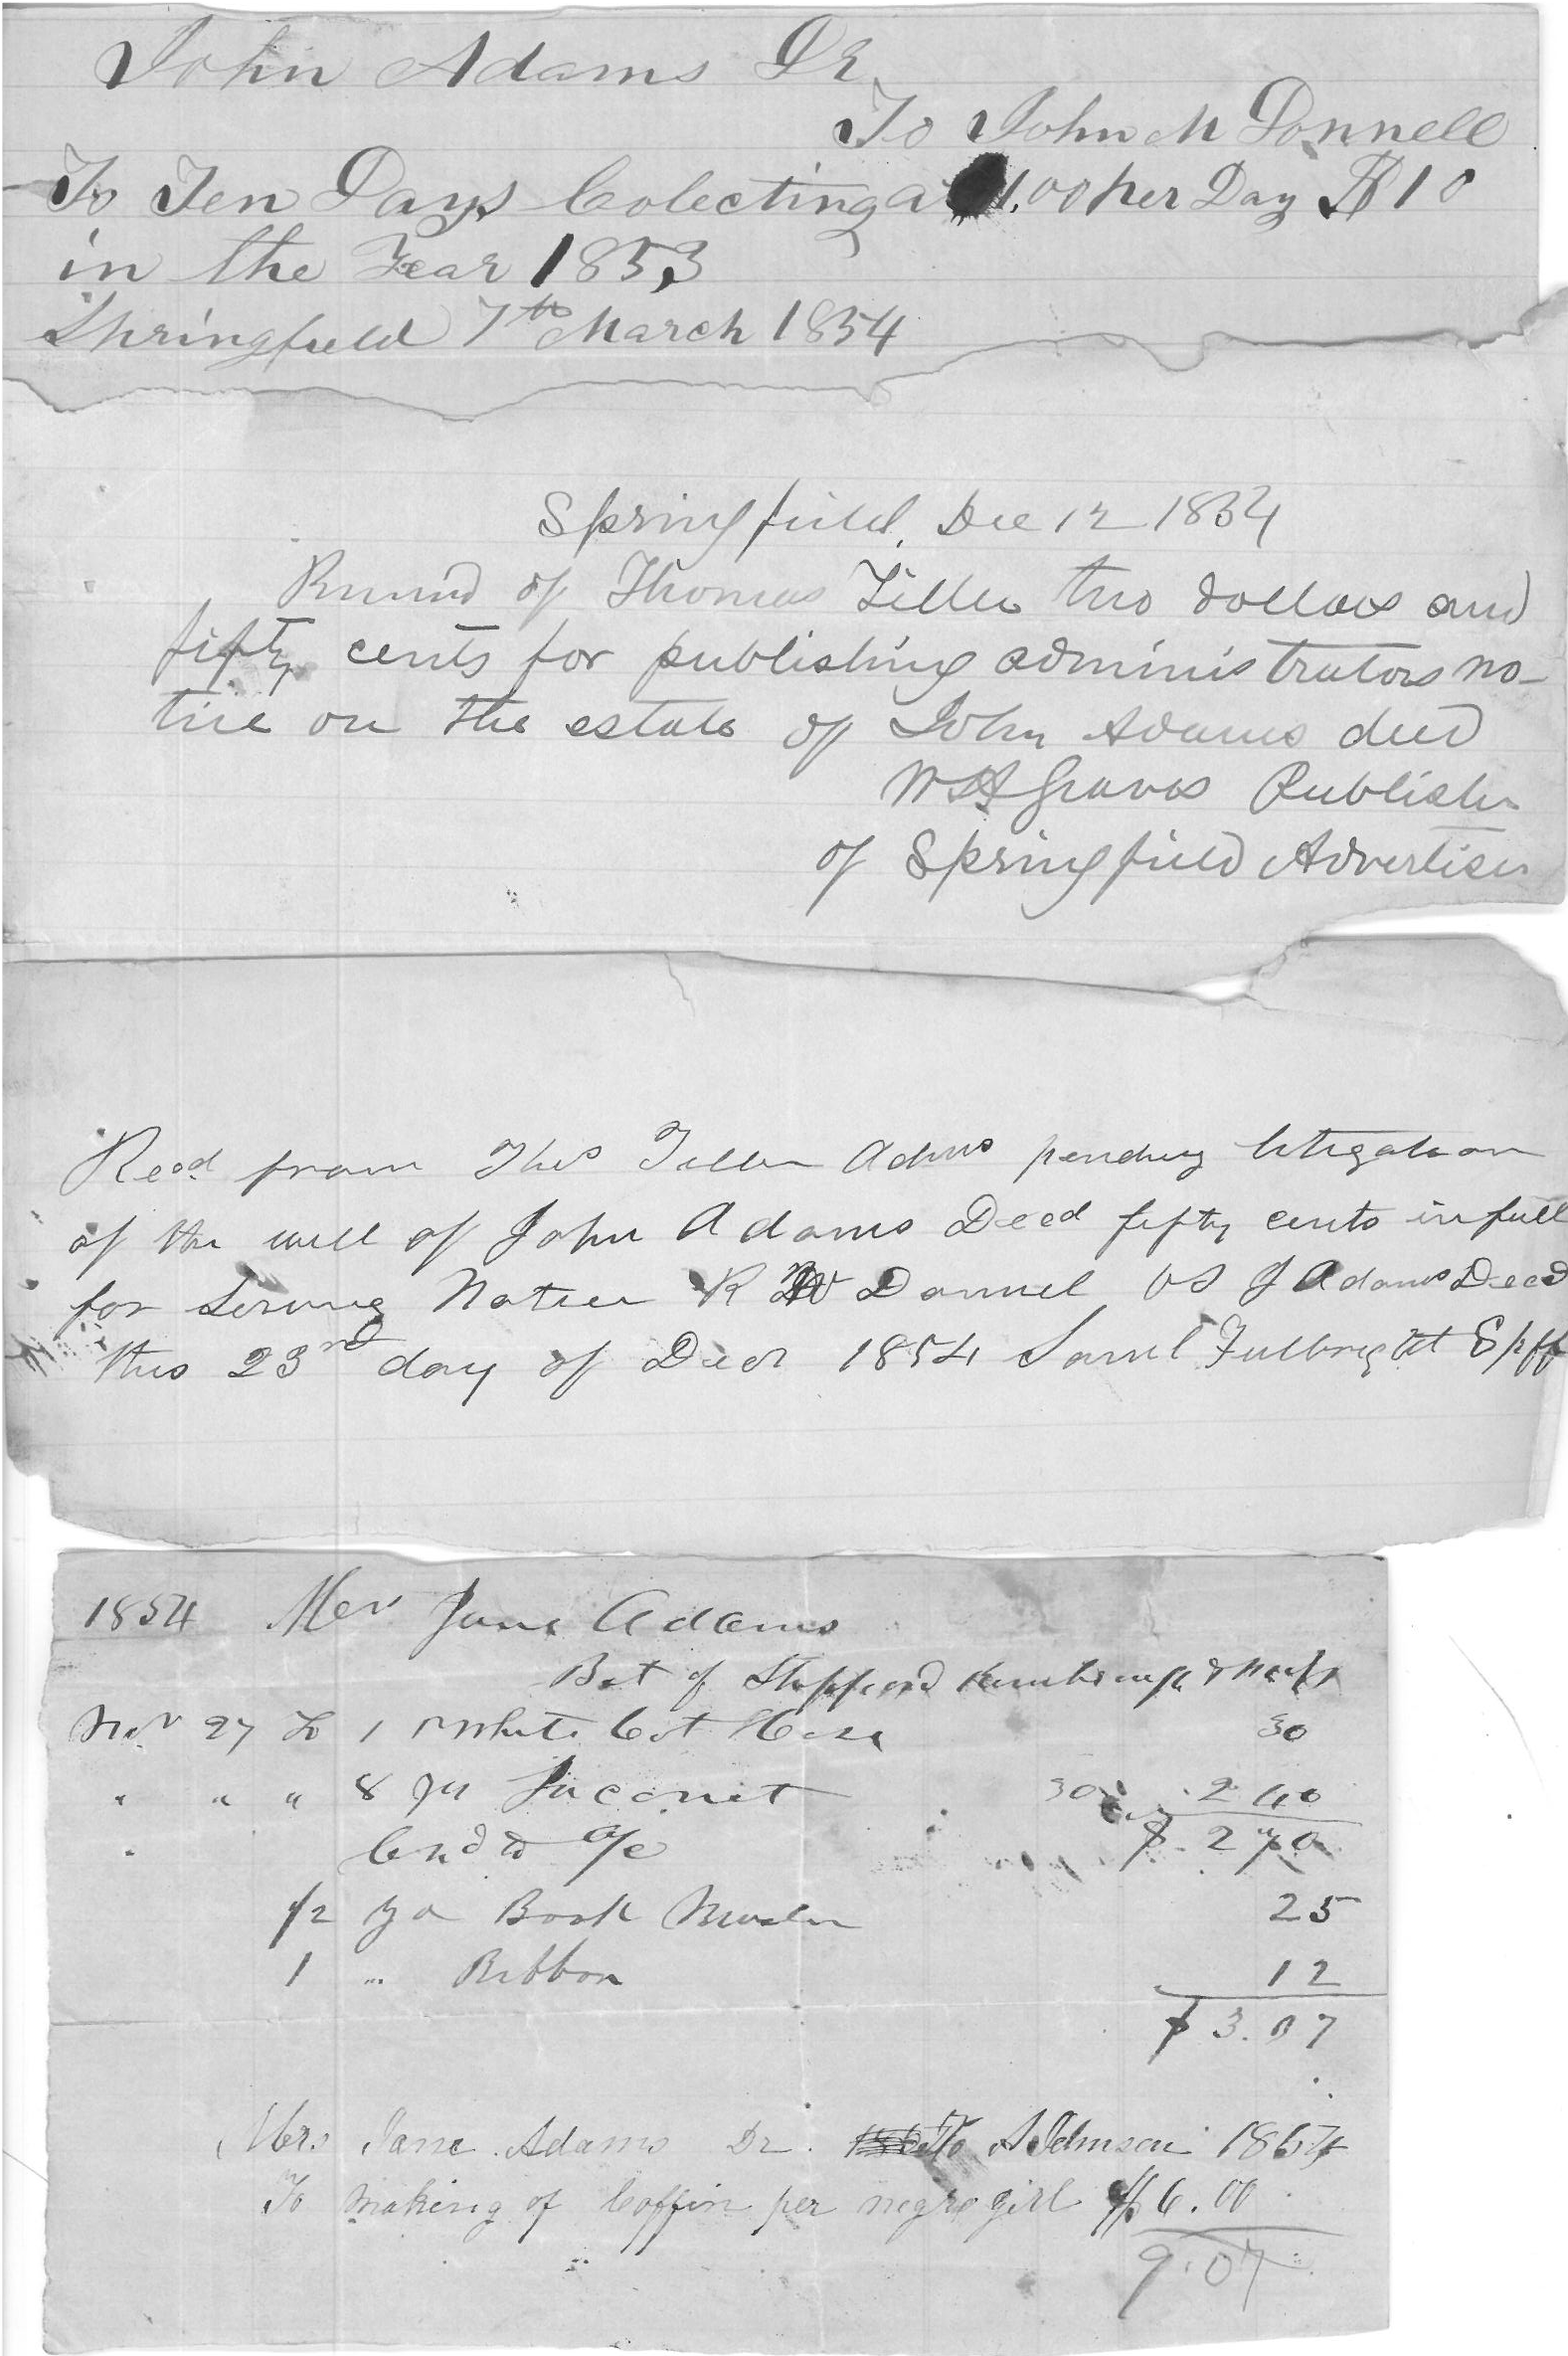 John Adams Dr
To John M Donnell
To Ten Days Colecting a 1.00 per Day $10
in the Year 1853
Springfield 7th March 1854
Springfield, Dec 12 1854
Received of Thomas Tiller two dollars and
fifty cents for publishing administrators no-
tice on the estate of John Adams decd
W H Graves Publisher
of Springfield Advertiser
Recd from Thos Tiller Admr pending litigation
of the will of John Adams Decd fifty cents in full
for serving Notice R M Donnel vs J Adams Decd
this 23rd day of Decr 1854 Saml Fulbright Shff
1854 Mrs Jane Adams
Bot of Sheppard &
Nov 27 To 1 White Cot Hose 30
" " " 8 yds Jaconet 30 2 40
" Chd to a/c $ 2 70
1/2 yd Book Muslin 25
1 " Ribbon 12
$ 3.07
Mrs Jane Adams Dr. To A Johnson 1854
To making of Coffin per negro girl $6.00
9.07